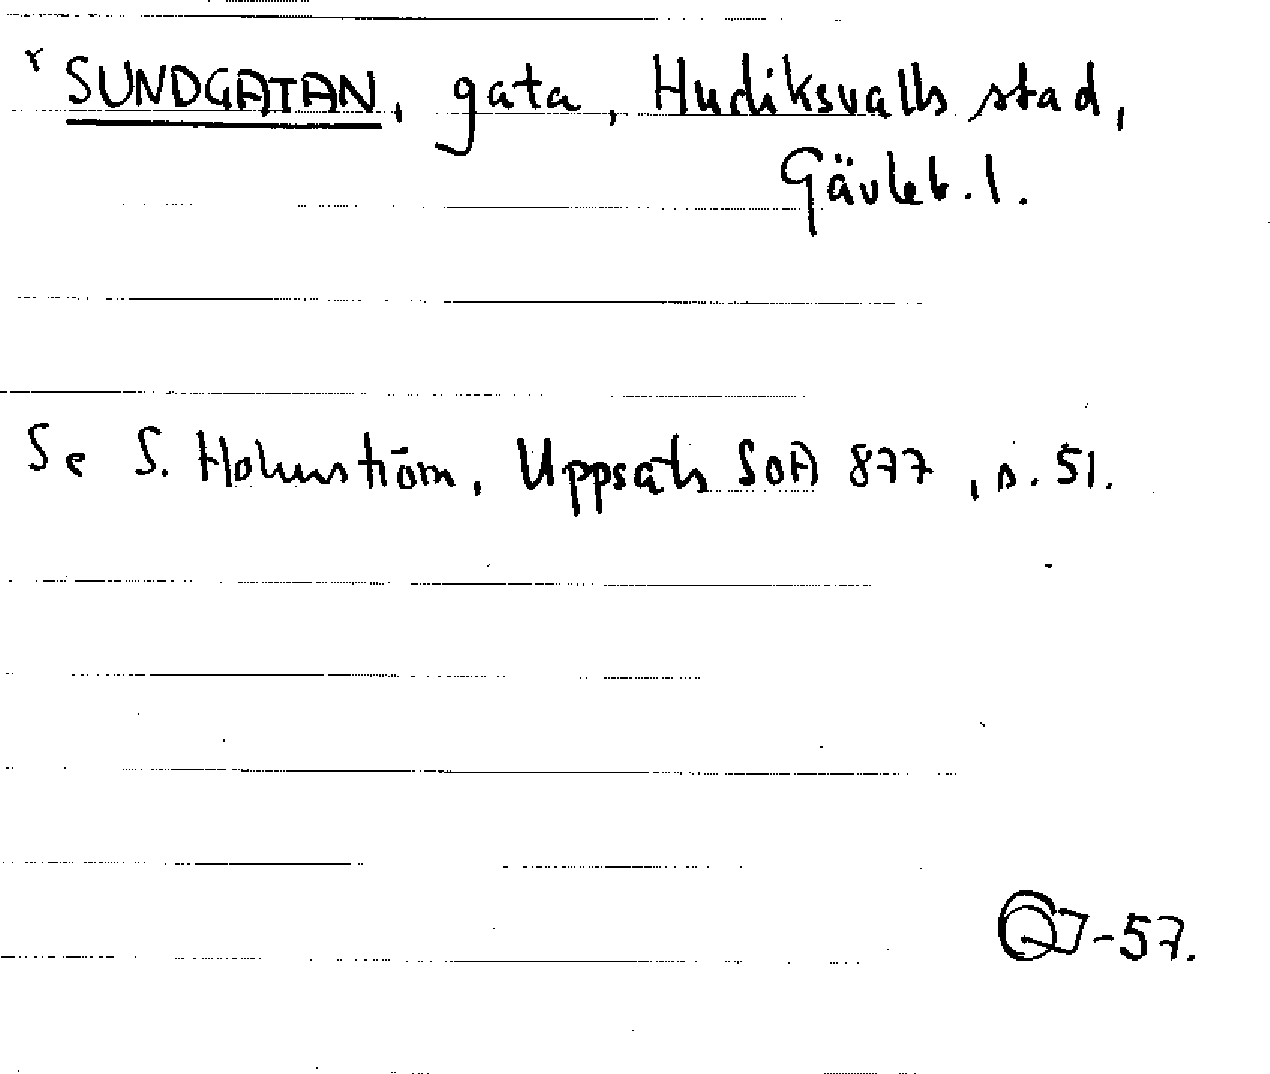 SUNDGATAN, gata, Hudiksvalls stad,
Gävleb. l.
Se S. Holmström, Uppsats SOA 877, s. 51.
-57.